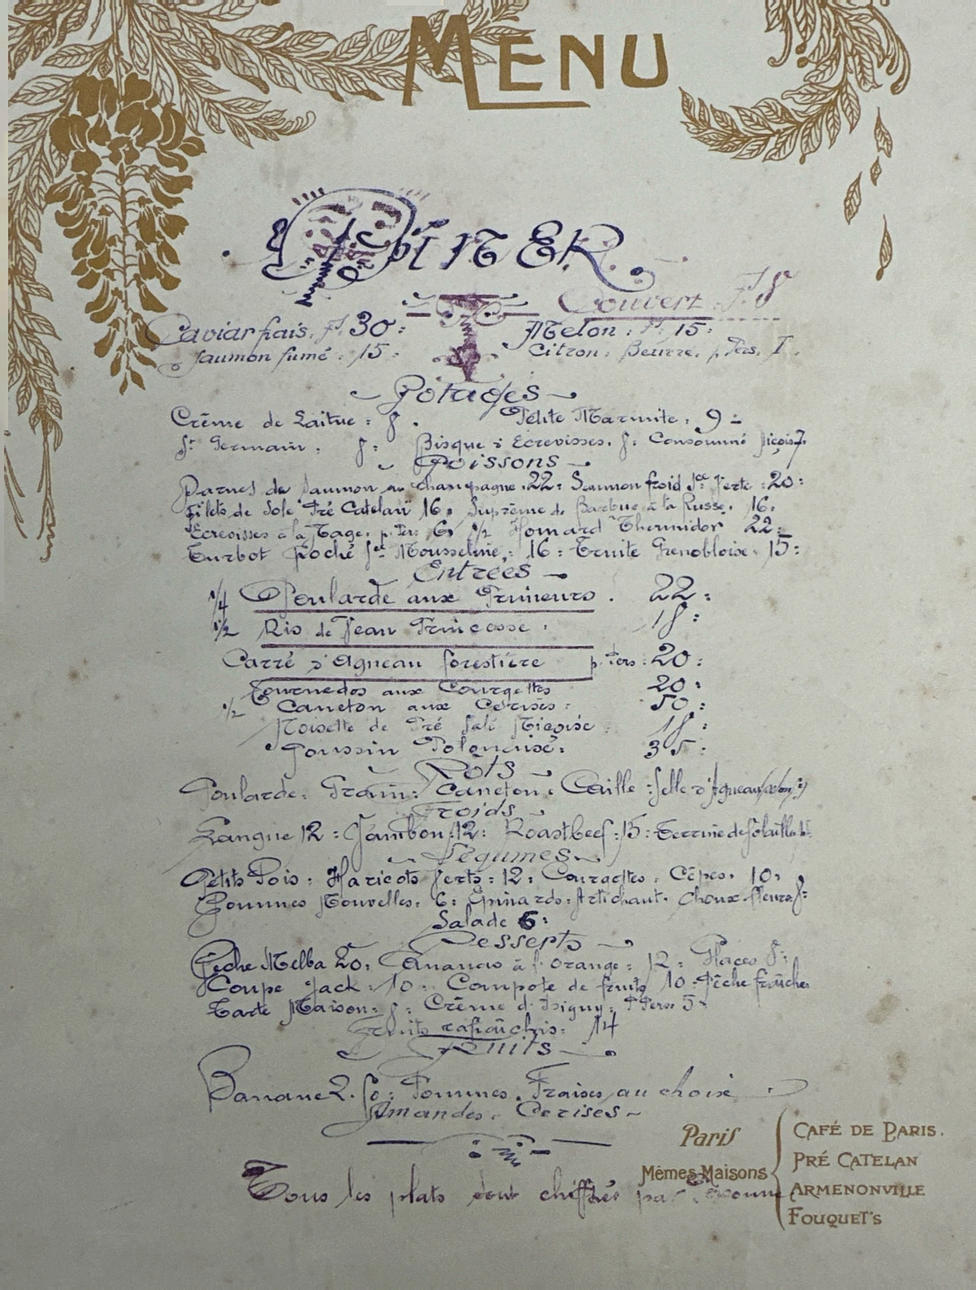 MENU
DINER
Couvert. F. 8
Caviar frais. F. 30: Melon: F. 15:
Saumon fumé: 15: Citron: Beurre. p. Pers. 1.
Potages
Crème de Laitue: 8. Petite Marmite. 9:
St Germain. 8: Bisque d'Ecrevisses. 8: Consommé Niçois 7
Poissons
Darnes de Saumon au champagne. 22: Saumon froid Sce Verte: 20:
Filets de Sole Pré Catelan 16. Suprême de Barbue à la Russe. 16.
Ecrevisses à la Nage. p. Pers 6. 1/2 Homard Thermidor 22:
Turbot poché Sce Mousseline: 16: Truite Grenobloise. 15:
Entrées
1/4 Poularde aux Primeurs. 22:
1/2 Ris de Veau Princesse: 18:
Carré d'Agneau forestière p. Pers: 20:
Tournedos aux Courgettes 20:
1/2 Caneton aux Cerises: 50:
Noisette de Pré Salé Niçoise: 18:
Poussin Polonaise: 35:
Rots
Poularde: Grain: Caneton. Caille: Selle d'Agneau
Froids
Langue 12: Jambon 12: Roastbeef: 15: Terrine de
Légumes
Petits Pois: Haricots Verts: 12: Courgettes. Cèpes. 10:
Pommes Nouvelles. 6: Epinards: Artichaut. Choux-fleurs 8:
Salade 6:
Desserts
Pêche Melba 20. Ananas à l'orange: 12: Glaces 8:
Coupe Jack: 10: Compote de fruits 10: Pêche fraîche
Tarte Maison: 8: Crème d'Isigny. Pers: 5
Fruits rafraîchis: 14
Fruits
Banane 2.50: Pommes. Fraises au choix
Amandes. Cerises
Tous les plats sont chiffrés par Personne
Paris
Mêmes Maisons
CAFÉ DE PARIS.
PRÉ CATELAN
ARMENONVILLE
FOUQUET'S